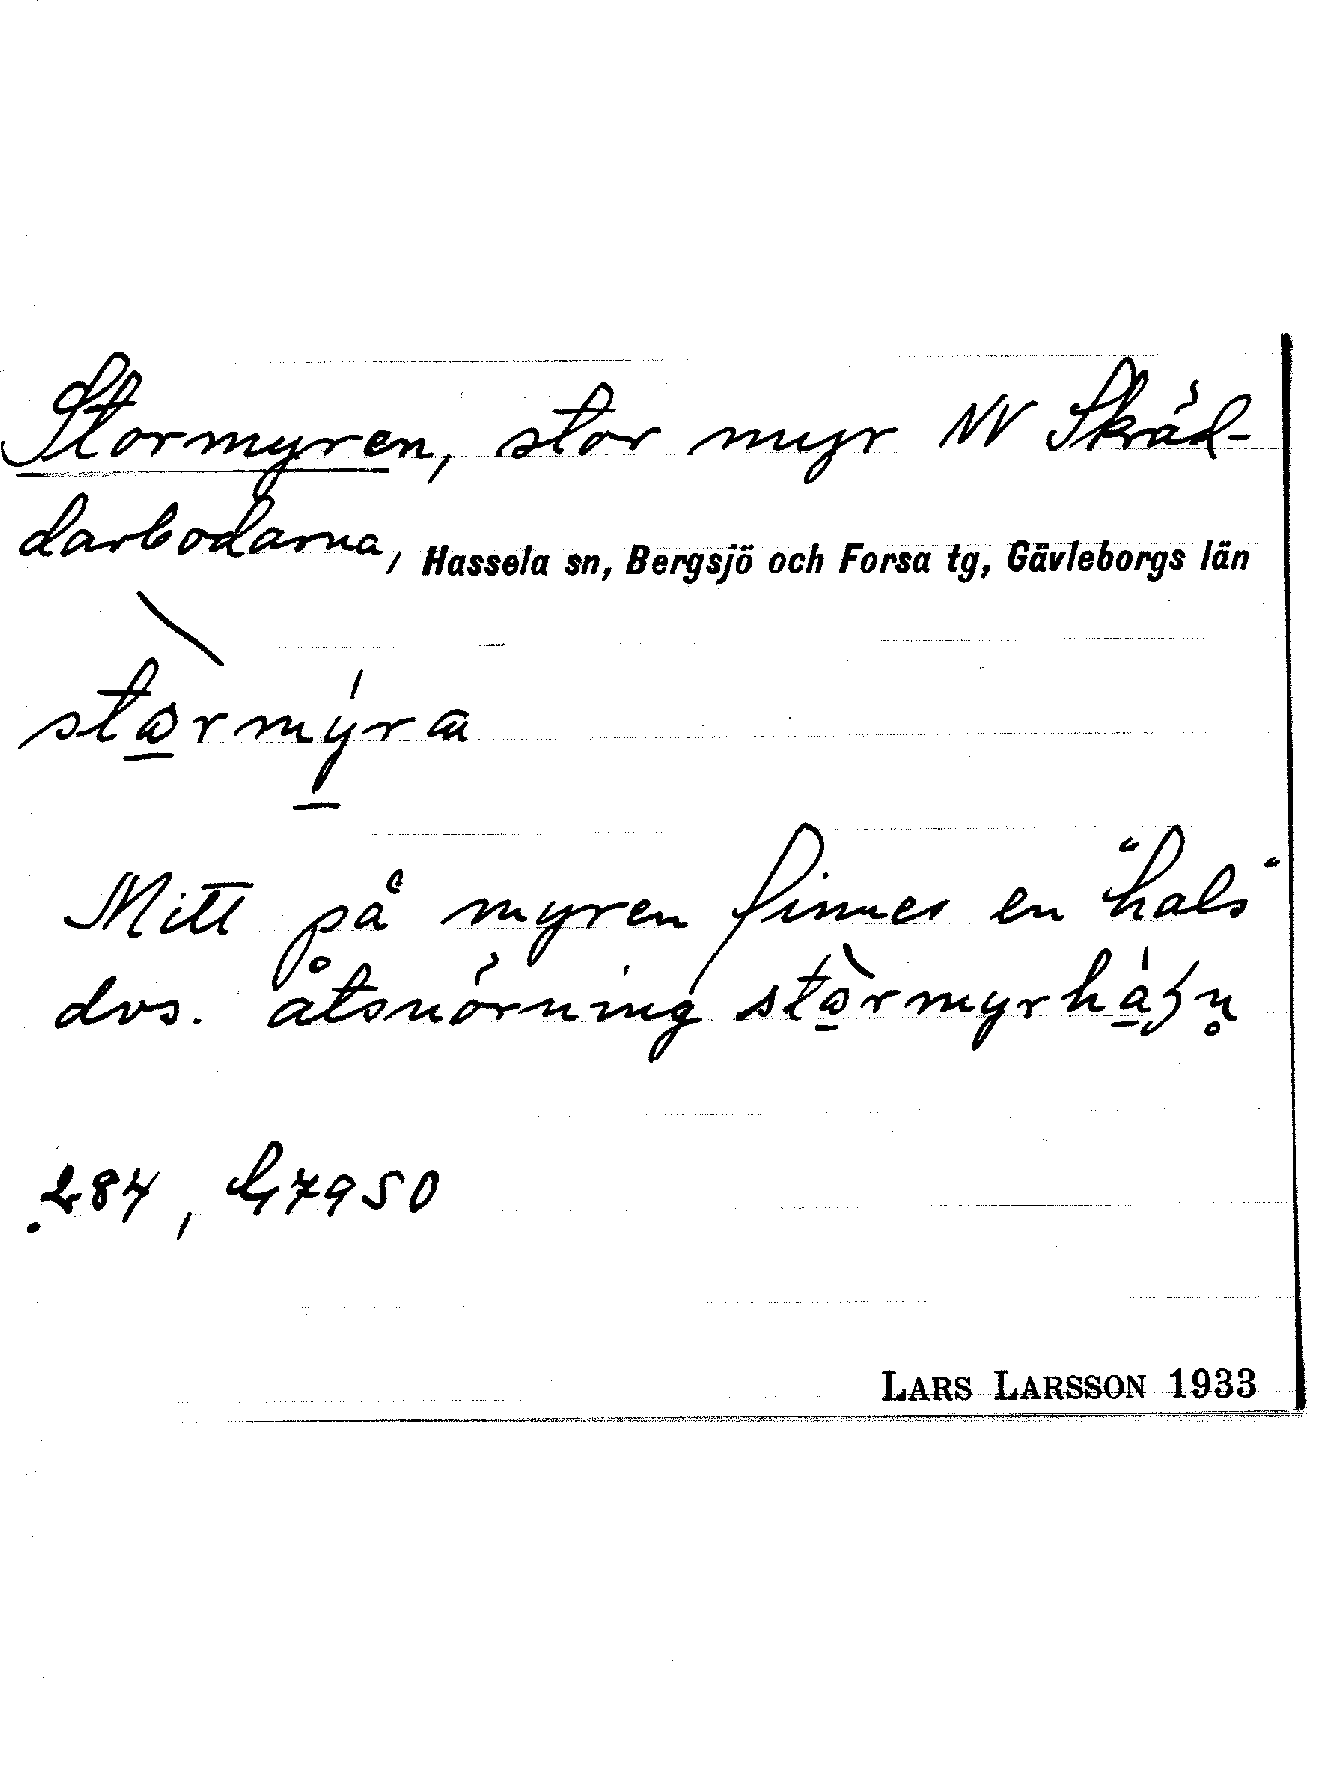 Stormyren, stor myr NV Skräd-
darbodarna, Hassela sn, Bergsjö och Forsa tg, Gävleborgs län
Mitt på myren finnes en "hals"
dvs. åtsnörning
284, G7950
LARS LARSSON 1933